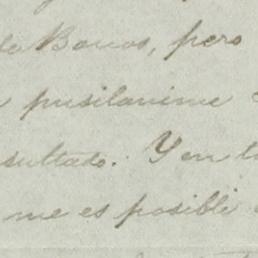 de Bancos, pero
pusilanime
sultado. Y en t
me es posible